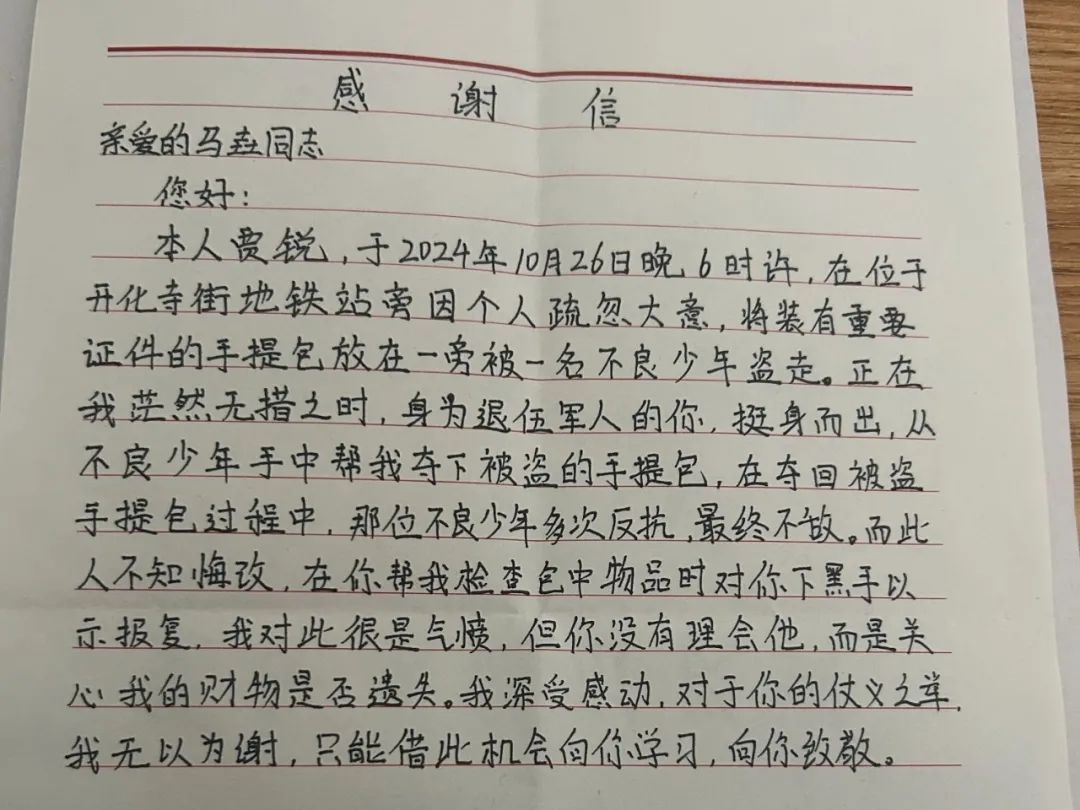 感谢信
亲爱的马垚同志
您好:
本人贾锐,于2024年10月26日晚6时许,在位于
开化寺街地铁站旁因个人疏忽大意,将装有重要
证件的手提包放在一旁被一名不良少年盗走。正在
我茫然无措之时,身为退伍军人的你,挺身而出,从
不良少年手中帮我夺下被盗的手提包,在夺回被盗
手提包过程中,那位不良少年多次反抗,最终不敌。而此
人不知悔改,在你帮我检查包中物品时对你下黑手以
示报复,我对此很是气愤,但你没有理会他,而是关
心我的财物是否遗失。我深受感动,对于你的仗义之举,
我无以为谢,只能借此机会向你学习,向你致敬。